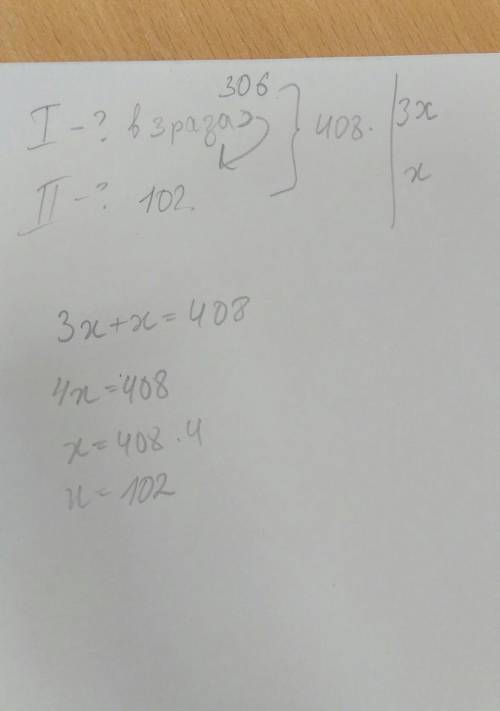 306
I - ? в 3 раза > } 408. | 3x
II - ? 102. | x
3x+x=408
4x=408
x=408.4
x=102